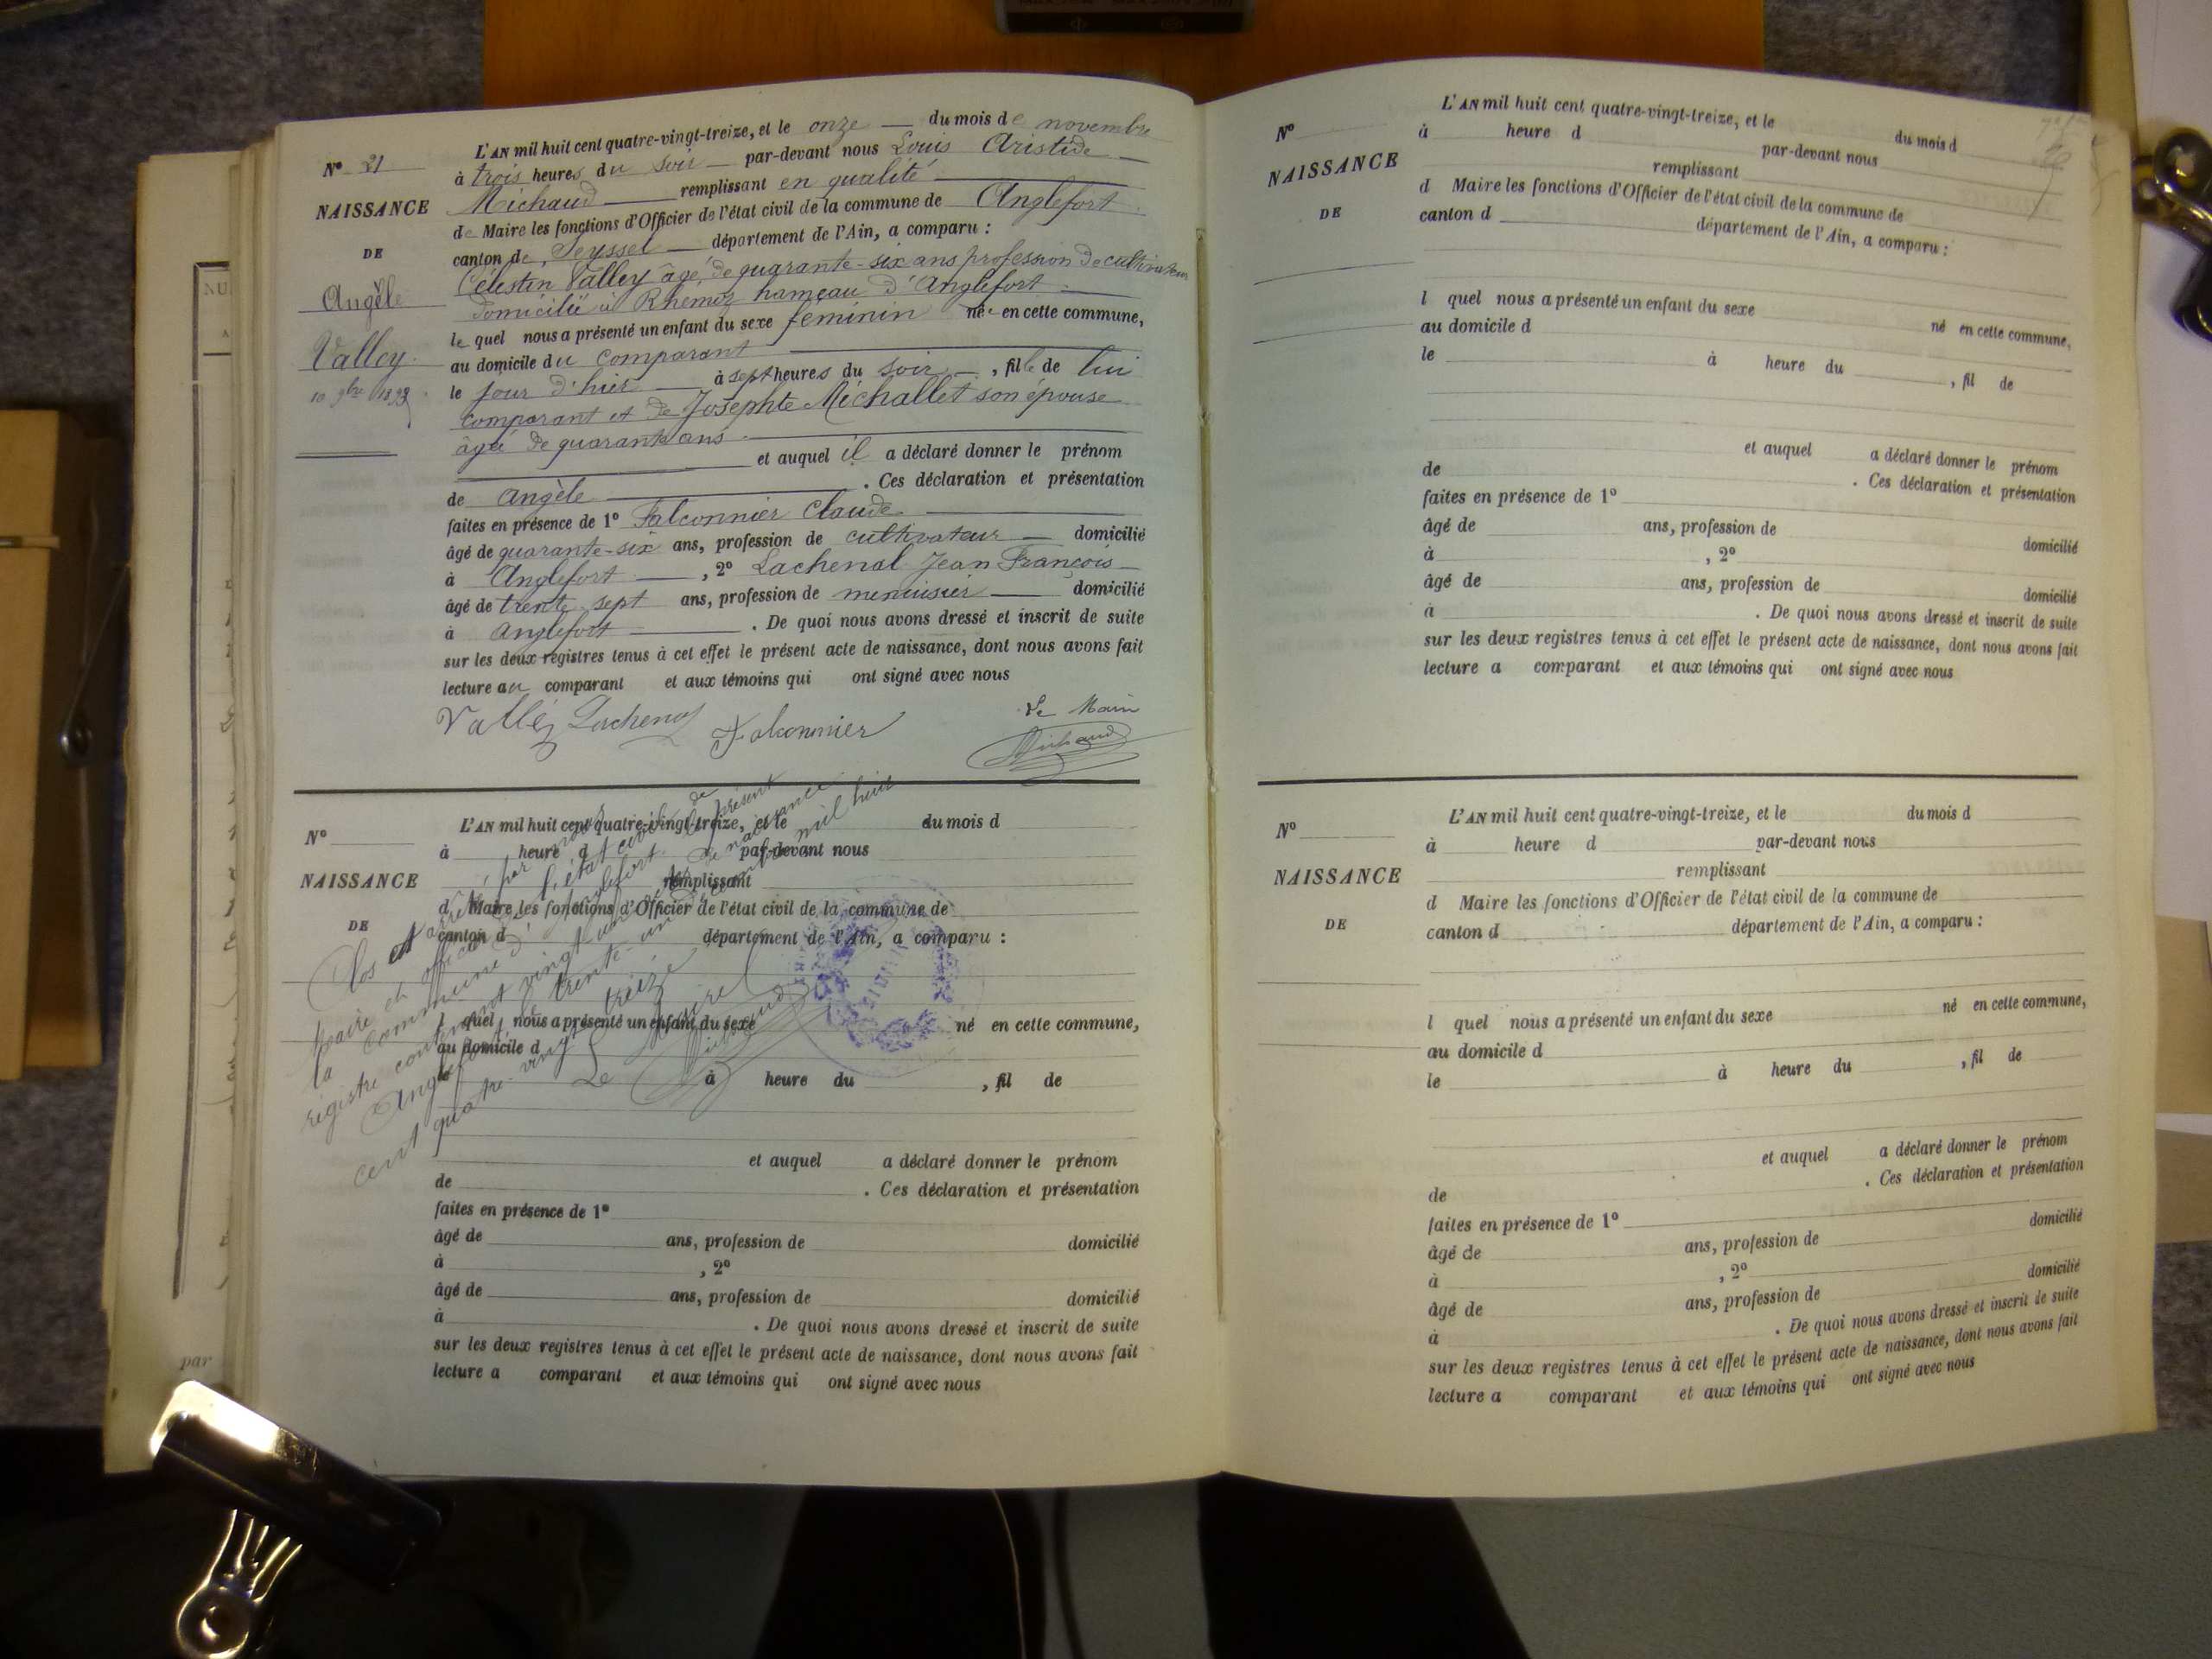 N° 21
NAISSANCE
DE
Angèle
Valley
10 9bre 1893
L'AN mil huit cent quatre-vingt-treize, et le onze du mois de novembre
à trois heures du soir par-devant nous Louis Aristide
Michaud remplissant en qualité
de Maire les fonctions d'Officier de l'état civil de la commune de Anglefort
canton de Seyssel département de l'Ain, a comparu :
Célestin Valley âgé de quarante-six ans profession de cultivateur
domicilié à Rhemoz hameau d'Anglefort
le quel nous a présenté un enfant du sexe féminin né en cette commune,
au domicile du comparant
le jour d'hier à sept heures du soir , fille de lui
comparant et de Josephte Michallet son épouse
âgée de quarante ans
et auquel il a déclaré donner le prénom
de Angèle . Ces déclaration et présentation
faites en présence de 1° Falconnier Claude
âgé de quarante-six ans, profession de cultivateur domicilié
à Anglefort , 2° Lachenal Jean François
âgé de trente sept ans, profession de menuisier domicilié
à Anglefort . De quoi nous avons dressé et inscrit de suite
sur les deux registres tenus à cet effet le présent acte de naissance, dont nous avons fait
lecture au comparant et aux témoins qui ont signé avec nous
Valléy Lachenal Falconnier
Le Maire
Michaud
N°
NAISSANCE
DE
L'AN mil huit cent quatre-vingt-treize, et le du mois d
à heure d par-devant nous
remplissant
d Maire les fonctions d'Officier de l'état civil de la commune de
canton d département de l'Ain, a comparu :
l quel nous a présenté un enfant du sexe né en cette commune,
au domicile d
le à heure du , fil de
et auquel a déclaré donner le prénom
de . Ces déclaration et présentation
faites en présence de 1°
âgé de ans, profession de domicilié
à , 2°
âgé de ans, profession de domicilié
à . De quoi nous avons dressé et inscrit de suite
sur les deux registres tenus à cet effet le présent acte de naissance, dont nous avons fait
lecture a comparant et aux témoins qui ont signé avec nous
Clos et arrêté par nous
maire et officier de l'état civil de
la commune d'Anglefort le présent
registre contenant vingt un actes de naissance
Anglefort, le trente-un mil huit
cent quatre-vingt treize
Le Maire
Michaud
N°
NAISSANCE
DE
L'AN mil huit cent quatre-vingt-treize, et le du mois d
à heure d par-devant nous
remplissant
d Maire les fonctions d'Officier de l'état civil de la commune de
canton d département de l'Ain, a comparu :
l quel nous a présenté un enfant du sexe
au domicile d né en cette commune,
le à heure du , fil de
et auquel a déclaré donner le prénom
de . Ces déclaration et présentation
faites en présence de 1°
âgé de ans, profession de domicilié
à , 2°
âgé de ans, profession de domicilié
à . De quoi nous avons dressé et inscrit de suite
sur les deux registres tenus à cet effet le présent acte de naissance, dont nous avons fait
lecture a comparant et aux témoins qui ont signé avec nous
N°
NAISSANCE
DE
L'AN mil huit cent quatre-vingt-treize, et le du mois d
à heure d par-devant nous
remplissant
d Maire les fonctions d'Officier de l'état civil de la commune de
canton d département de l'Ain, a comparu :
l quel nous a présenté un enfant du sexe né en cette commune,
au domicile d
le à heure du , fil de
et auquel a déclaré donner le prénom
de . Ces déclaration et présentation
faites en présence de 1°
âgé de ans, profession de domicilié
à , 2°
âgé de ans, profession de domicilié
à . De quoi nous avons dressé et inscrit de suite
sur les deux registres tenus à cet effet le présent acte de naissance, dont nous avons fait
lecture a comparant et aux témoins qui ont signé avec nous
NU
par